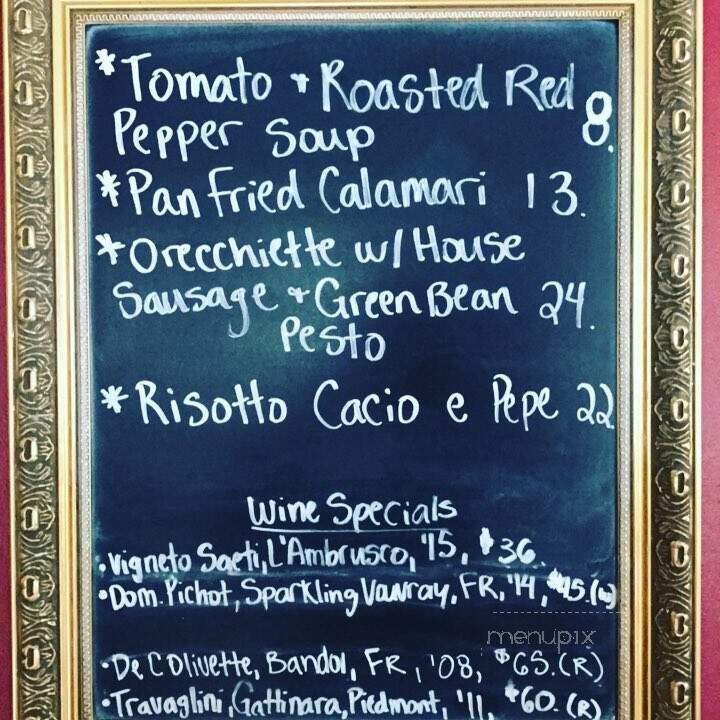 *Tomato + Roasted Red
Pepper Soup 8.
*Pan Fried Calamari 13.
*Orecchiette w/ House
Sausage + Green Bean 24.
Pesto
*Risotto Cacio e Pepe 22
Wine Specials
•Vigneto Saeti, L'Ambrusco, '15, $36.
•Dom. Pichot, Sparkling Vouvray, FR, '14, $45.(W)
menupix
•De L'Olivette, Bandol, FR, '08, $65.(R)
•Travaglini, Gattinara, Piedmont, '11, $60. (R)